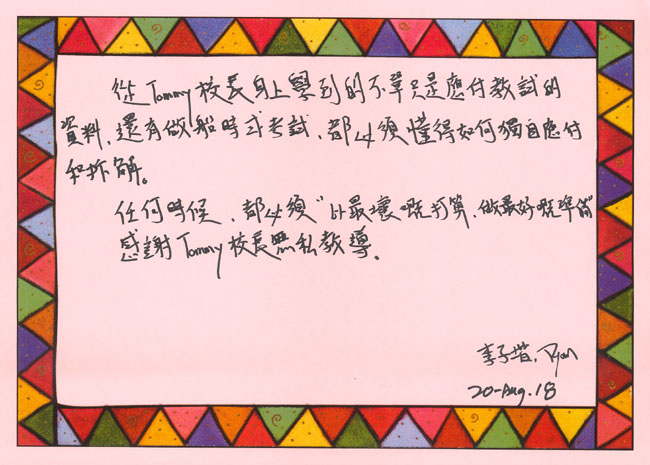 從Tommy校長身上學到的不單只是應付教試的
資料，還有做船時或考試，都必須懂得如何獨自應付
和拆解。
任何時候，都必須“以最壞嘅打算，做最好嘅準備”
感謝Tommy校長無私教導。
李子皆，
20-Aug.18